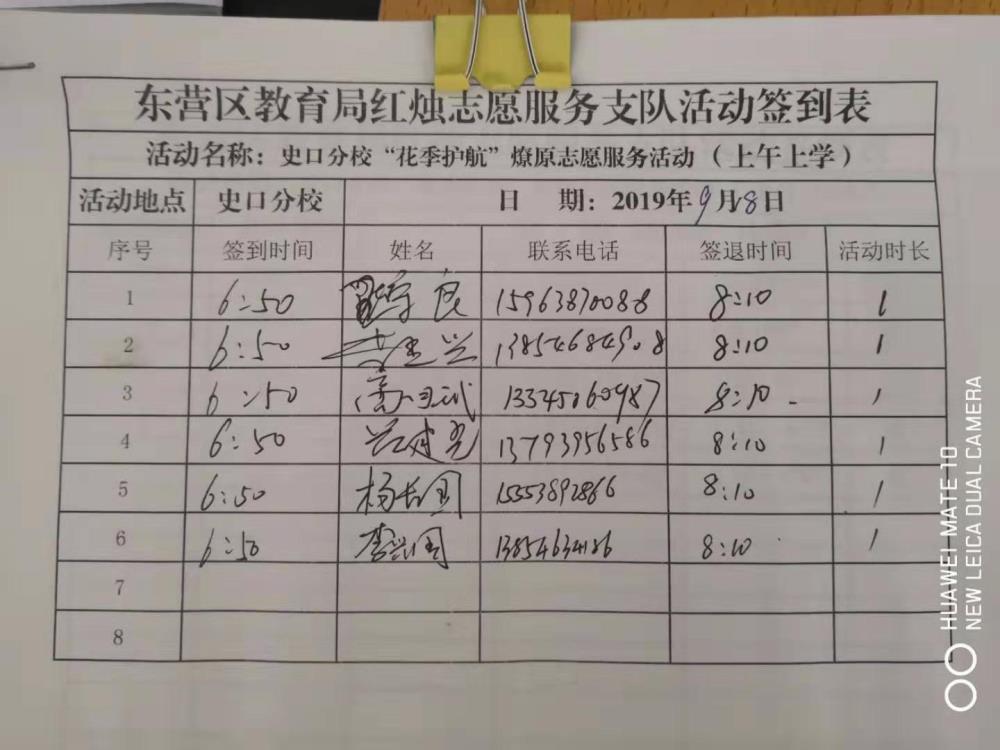 东营区教育局红烛志愿服务支队活动签到表
活动名称：史口分校“花季护航”燎原志愿服务活动（上午上学）
活动地点 史口分校 日 期：2019年9月8日
序号 签到时间 姓名 联系电话 签退时间 活动时长
1 6:50 良 15963870088 8:10 1
2 6:50 兴 13854684908 8:10 1
3 6:50 高 13345060987 8:10 1
4 6:50 13793956586 8:10 1
5 6:50 杨长国 15553892866 8:10 1
6 6:50 李兴国 8:10 1
7
8
HUAWEI MATE 10
NEW LEICA DUAL CAMERA